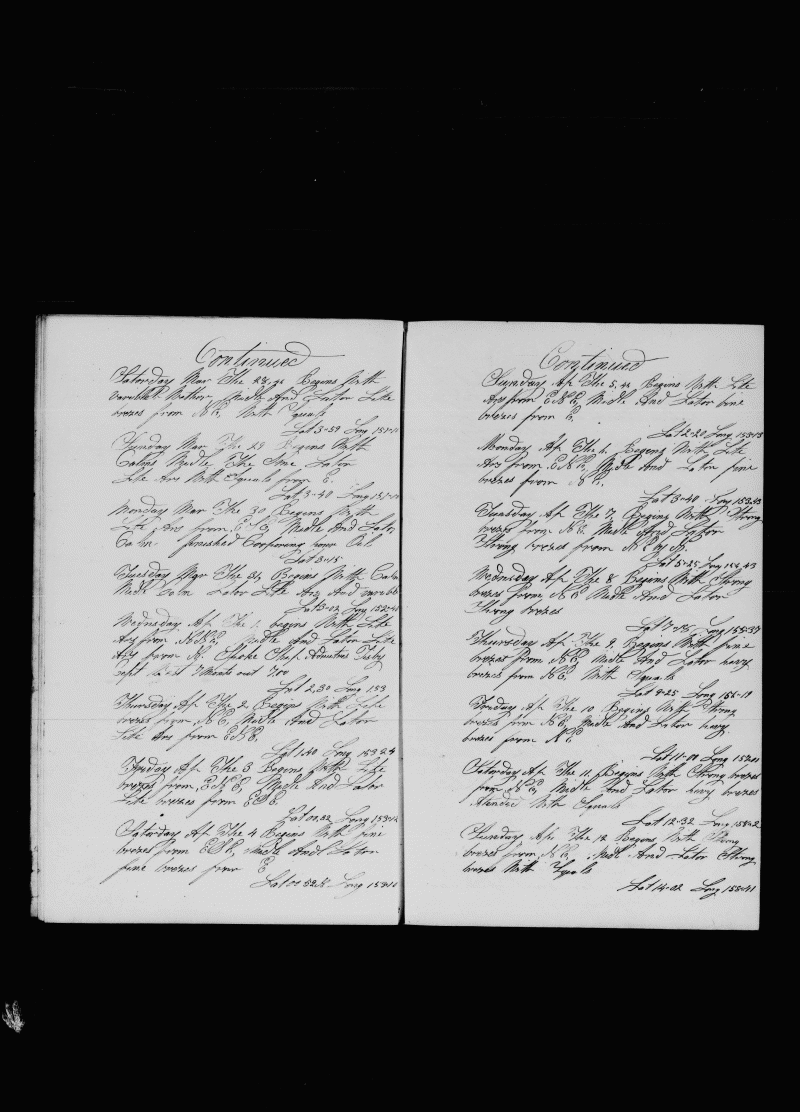 Continued
Saturday Mar The 28, Begins With
varible Wather, Midle And Lator Lite
brezes from N E, With Squals
Lat 3-59 Long 151-
Sunday Mar The 29 Begins With
Calms Midle The Same Lator
Lite Ars With Squals from E.
Lat 3-40 Long 151-
Monday Mar The 30 Begins With
Lite Ars from Midle And Lator
Calm finished Coopering our Oil
Lat 3-15
Tuesday Mar The 31, Begins With Calm
Midle Calm Lator Lite Ars And
Lat 3-02 Long 152-41
Wednesday Ap The 1, begins With Lite
Ars from N N E, Midle And Lator Lite
Ars from N. Spoke Ship
7 Months out 700
Lat 2,30 Long 153
Thursday Ap The 2 Begins With Lite
brezes from N E, Midle And Lator
Lite Ars from E N E,
Lat 1,40 Long 153 24
Friday Ap The 3 Begins With Lite
brezes from E N E, Midle And Lator
Lite brezes from E S E,
Lat 00,22 Long 153-
Saturday Ap The 4 Begins With fine
brezes from E S E, Midle And Lator
fine brezes from E
Lat 00 52 N Long 153
Continued
Sunday Ap The 5, Begins With Lite
Ars from E N E, Midle And Lator fine
brezes from E
Lat 2-20 Long 153-15
Monday Ap The 6, Begins With Lite
Ars from E N E, Midle And Lator fine
brezes from N E,
Lat 3-40 Long 153-43
Tuesday Ap The 7, Begins With Strong
brezes from N E, Midle And Lator
Strong brezes from
Lat 5-25 Long 154,43
Wednesday Ap The 8 Begins With Strong
brezes from N E Midle And Lator
Strong brezes
Lat Long 155-37
Thursday Ap The 9, Begins With fine
brezes from N E, Midle And Lator hevy
brezes from N E, With Squals
Lat 9-25 Long 156-19
Friday Ap The 10 Begins With Strong
brezes from N E, Midle And Lator hevy
brezes from N E
Lat 11-00 Long
Saturday Ap The 11, Begins With Strong brezes
from N E, Midle And Lator hevy brezes
Atended With Squals
Lat 12-32 Long 158-2
Sunday Ap The 12 Begins With Strong
brezes from N E, Midle And Lator Strong
brezes With Squals
Lat 14-02 Long 158-41